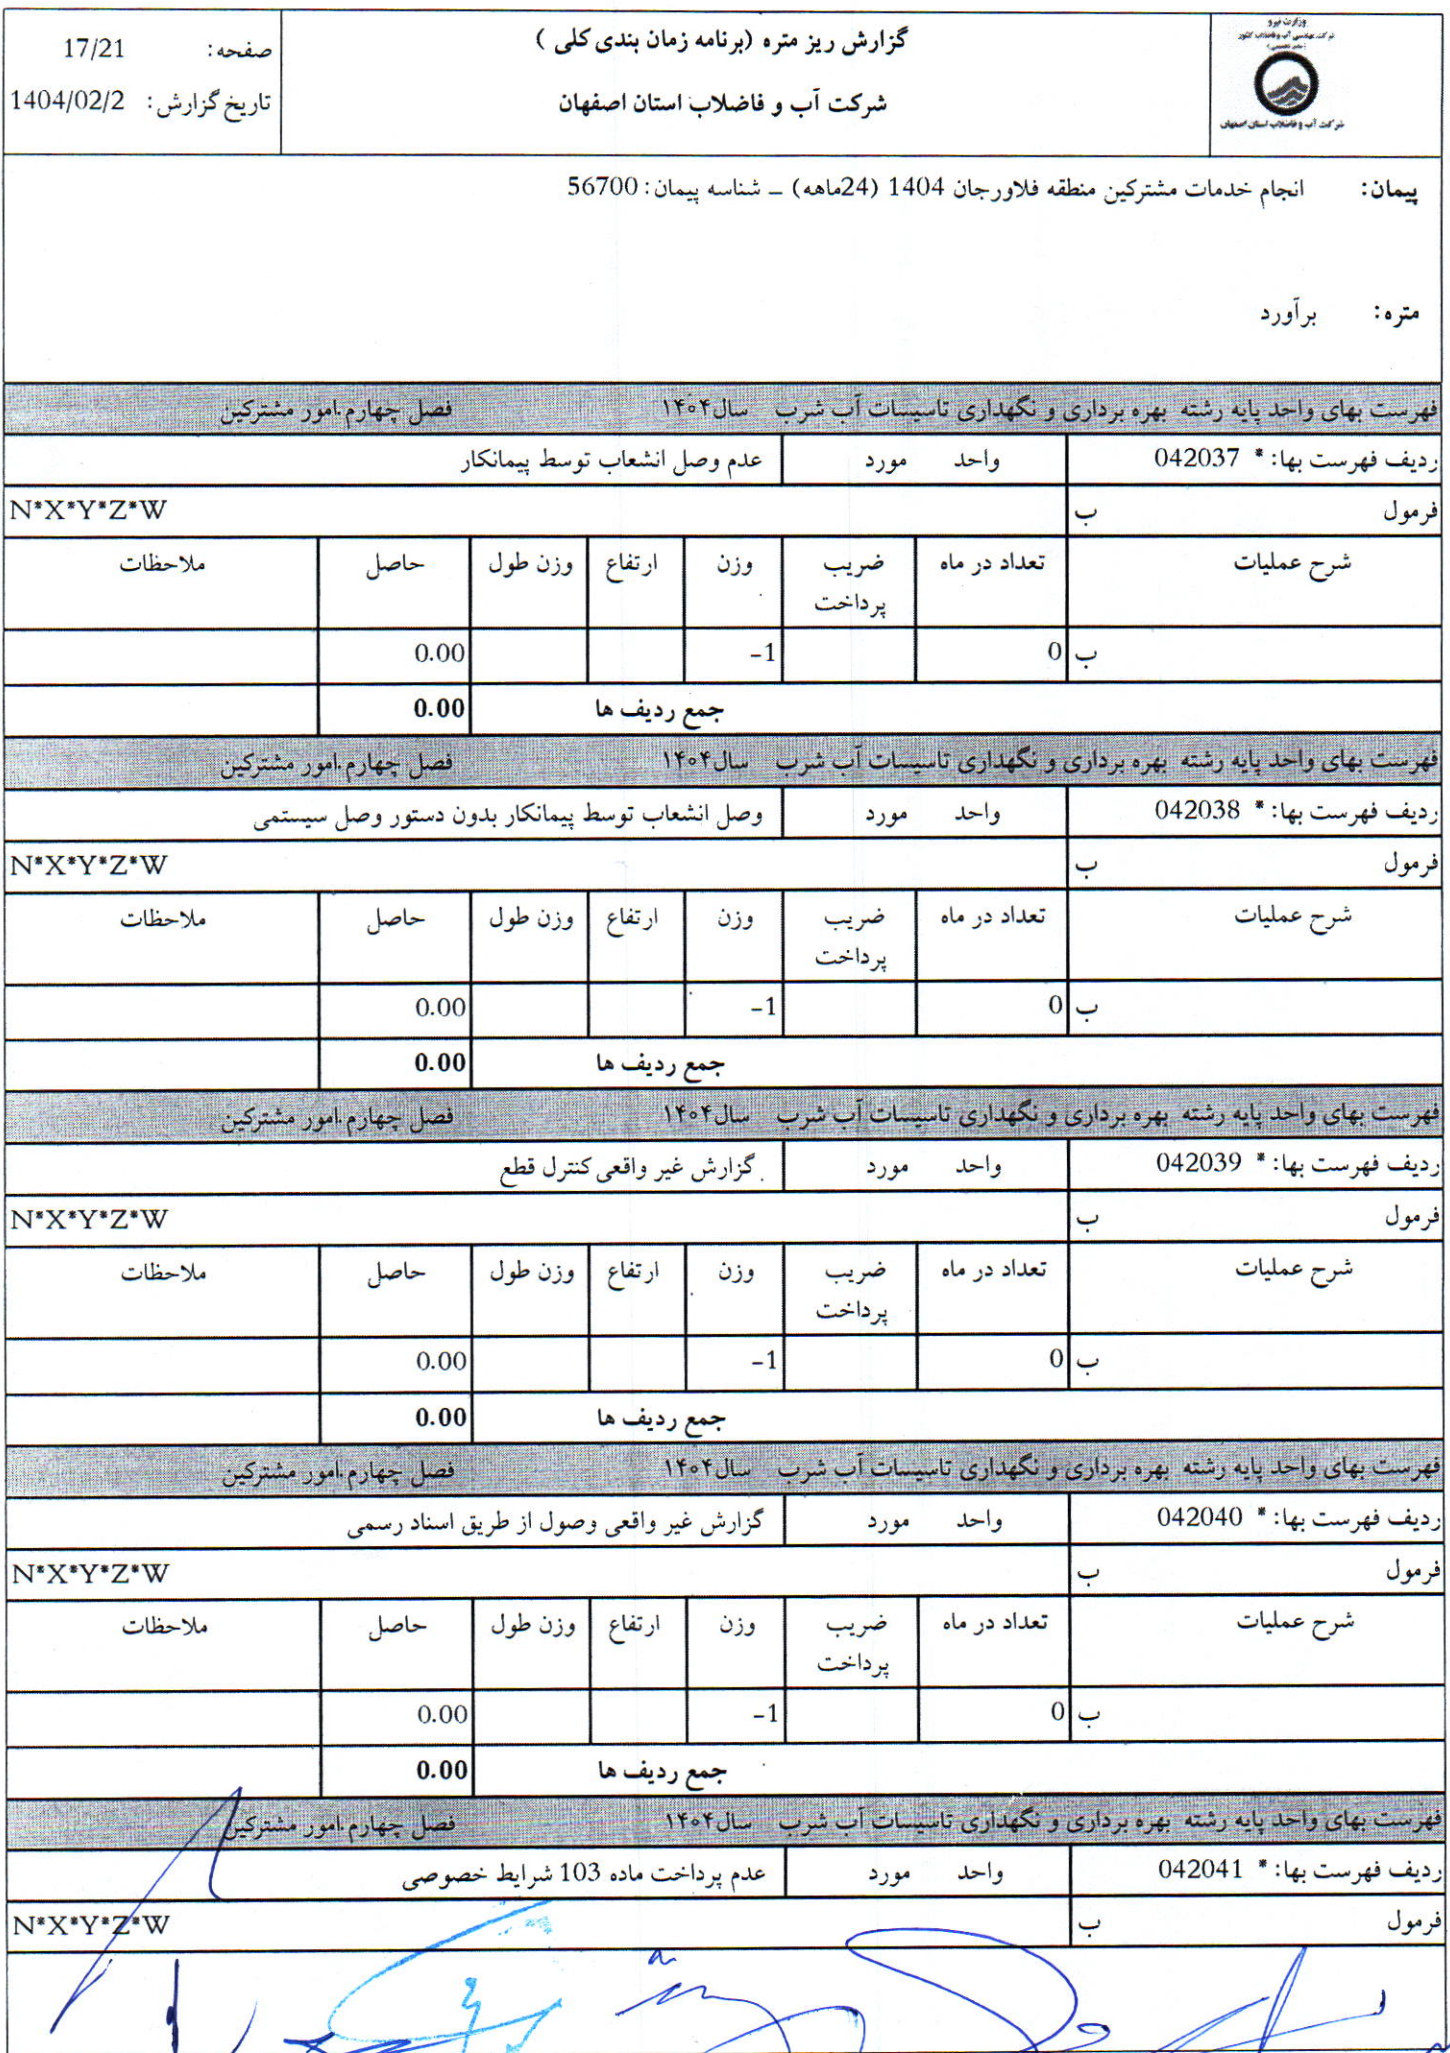 وزارت نیرو
شرکت مهندسی آب و فاضلاب کشور
(مادر تخصصی)
شرکت آب و فاضلاب استان اصفهان
گزارش ریز متره (برنامه زمان بندی کلی )
شرکت آب و فاضلاب استان اصفهان
صفحه: 17/21
تاریخ گزارش: 1404/02/2
پیمان: انجام خدمات مشترکین منطقه فلاورجان 1404 (24ماهه) – شناسه پیمان: 56700
متره: برآورد
فهرست بهای واحد پایه رشته بهره برداری و نگهداری تاسیسات آب شرب سال۱۴۰۴ فصل چهارم.امور مشترکین
ردیف فهرست بها: * 042037 واحد مورد عدم وصل انشعاب توسط پیمانکار
فرمول ب N*X*Y*Z*W
شرح عملیات تعداد در ماه ضریب پرداخت وزن ارتفاع وزن طول حاصل ملاحظات
ب 0 -1 0.00
جمع ردیف ها 0.00
فهرست بهای واحد پایه رشته بهره برداری و نگهداری تاسیسات آب شرب سال۱۴۰۴ فصل چهارم.امور مشترکین
ردیف فهرست بها: * 042038 واحد مورد وصل انشعاب توسط پیمانکار بدون دستور وصل سیستمی
فرمول ب N*X*Y*Z*W
شرح عملیات تعداد در ماه ضریب پرداخت وزن ارتفاع وزن طول حاصل ملاحظات
ب 0 -1 0.00
جمع ردیف ها 0.00
فهرست بهای واحد پایه رشته بهره برداری و نگهداری تاسیسات آب شرب سال۱۴۰۴ فصل چهارم.امور مشترکین
ردیف فهرست بها: * 042039 واحد مورد گزارش غیر واقعی کنترل قطع
فرمول ب N*X*Y*Z*W
شرح عملیات تعداد در ماه ضریب پرداخت وزن ارتفاع وزن طول حاصل ملاحظات
ب 0 -1 0.00
جمع ردیف ها 0.00
فهرست بهای واحد پایه رشته بهره برداری و نگهداری تاسیسات آب شرب سال۱۴۰۴ فصل چهارم.امور مشترکین
ردیف فهرست بها: * 042040 واحد مورد گزارش غیر واقعی وصول از طریق اسناد رسمی
فرمول ب N*X*Y*Z*W
شرح عملیات تعداد در ماه ضریب پرداخت وزن ارتفاع وزن طول حاصل ملاحظات
ب 0 -1 0.00
جمع ردیف ها 0.00
فهرست بهای واحد پایه رشته بهره برداری و نگهداری تاسیسات آب شرب سال۱۴۰۴ فصل چهارم.امور مشترکین
ردیف فهرست بها: * 042041 واحد مورد عدم پرداخت ماده 103 شرایط خصوصی
فرمول ب N*X*Y*Z*W